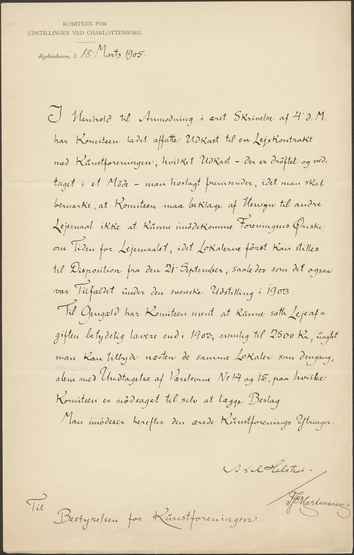 KOMITEEN FOR
UDSTILLINGEN VED CHARLOTTENBORG.
Kjøbenhavn, d. 15 Marts 1905.
I Henhold til Anmodning i æret Skrivelse af 4' d. M.
har Komiteen ladet affatte Udkast til en Lejekontrakt
med Kunstforeningen, hvilket Udkast – der er drøftet og ved-
taget i et Møde – man hoslagt fremsender, idet man skal
bemærke, at Komiteen maa beklage af Hensyn til andre
Lejemaal ikke at kunne imødekomme Foreningens Ønske
om Tiden for Lejemaalet, idet Lokalerne først kan stilles
til Disposition fra den 21' September, saaledes som det ogsaa
var Tilfældet under den svenske Udstilling i 1903
Til Gengæld har Komiteen ment at kunne sætte Lejeaf-
giften betydelig lavere end i 1903, nemlig til 2500 Kr, uagtet
man kan tilbyde næsten de samme Lokaler som dengang,
alene med Undtagelse af Værelserne No 14 og 15, paa hvilke
Komiteen er nødsaget til selv at lægge Beslag
Man imødeser herefter den ærede Kunstforenings Ytringer.
Til
Bestyrelsen for Kunstforeningen